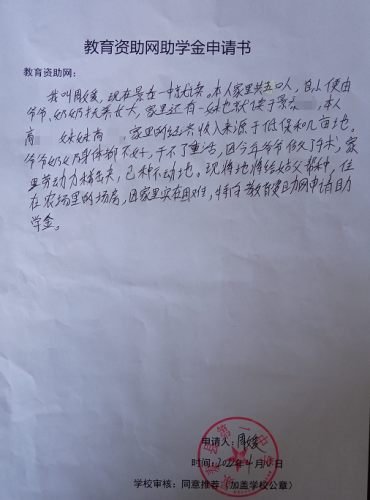 教育资助网助学金申请书
教育资助网：
我叫周媛，现在是在一中就读。本人家里共五口人，自小便由
爷爷、奶奶抚养长大，家里还有一妹也就读于景，本人
高 妹妹高 。家里的经济收入来源于低保和几亩地。
爷爷奶奶身体都不好，干不了重活，因今年爷爷做了手术，家
里劳动力缺失，已种不动地。现将地将给姑父帮种，住
在农场里的场房，因家里实在困难，特向教育资助网申请助
学金。
县第一中学
申请人：周媛
时间：202 年 月 日
学校审核：同意推荐（加盖学校公章）